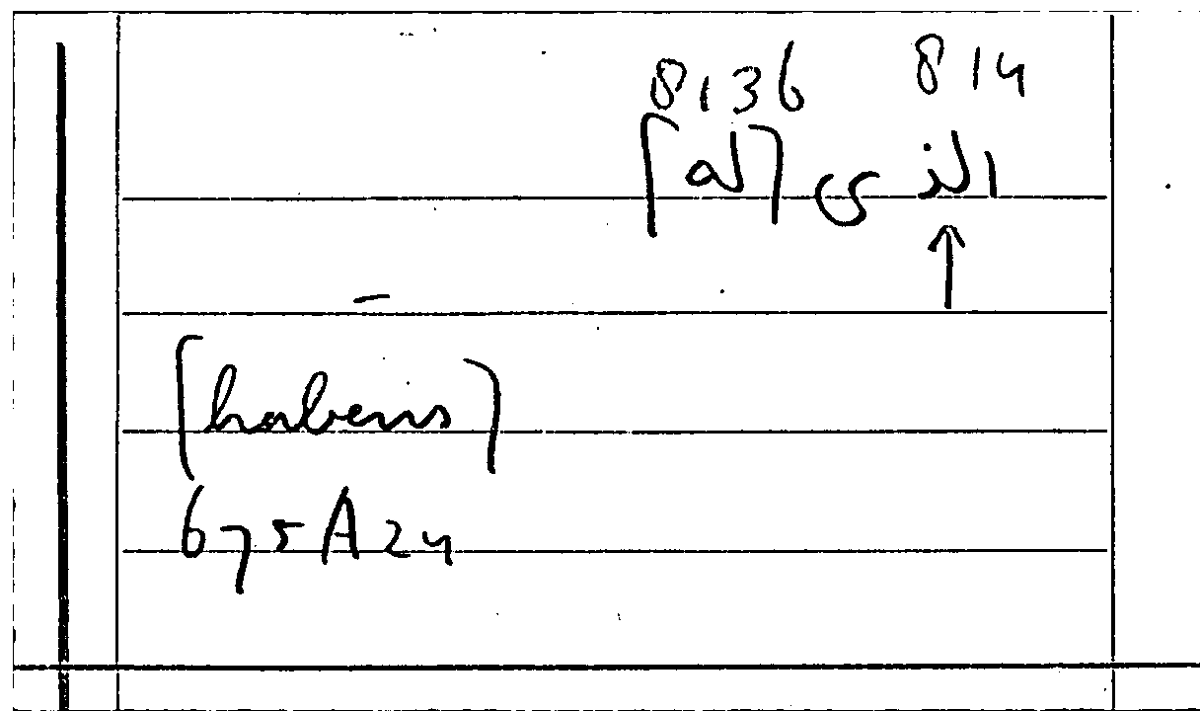 8136 814
الذى [له]
↑
[habens]
675A24